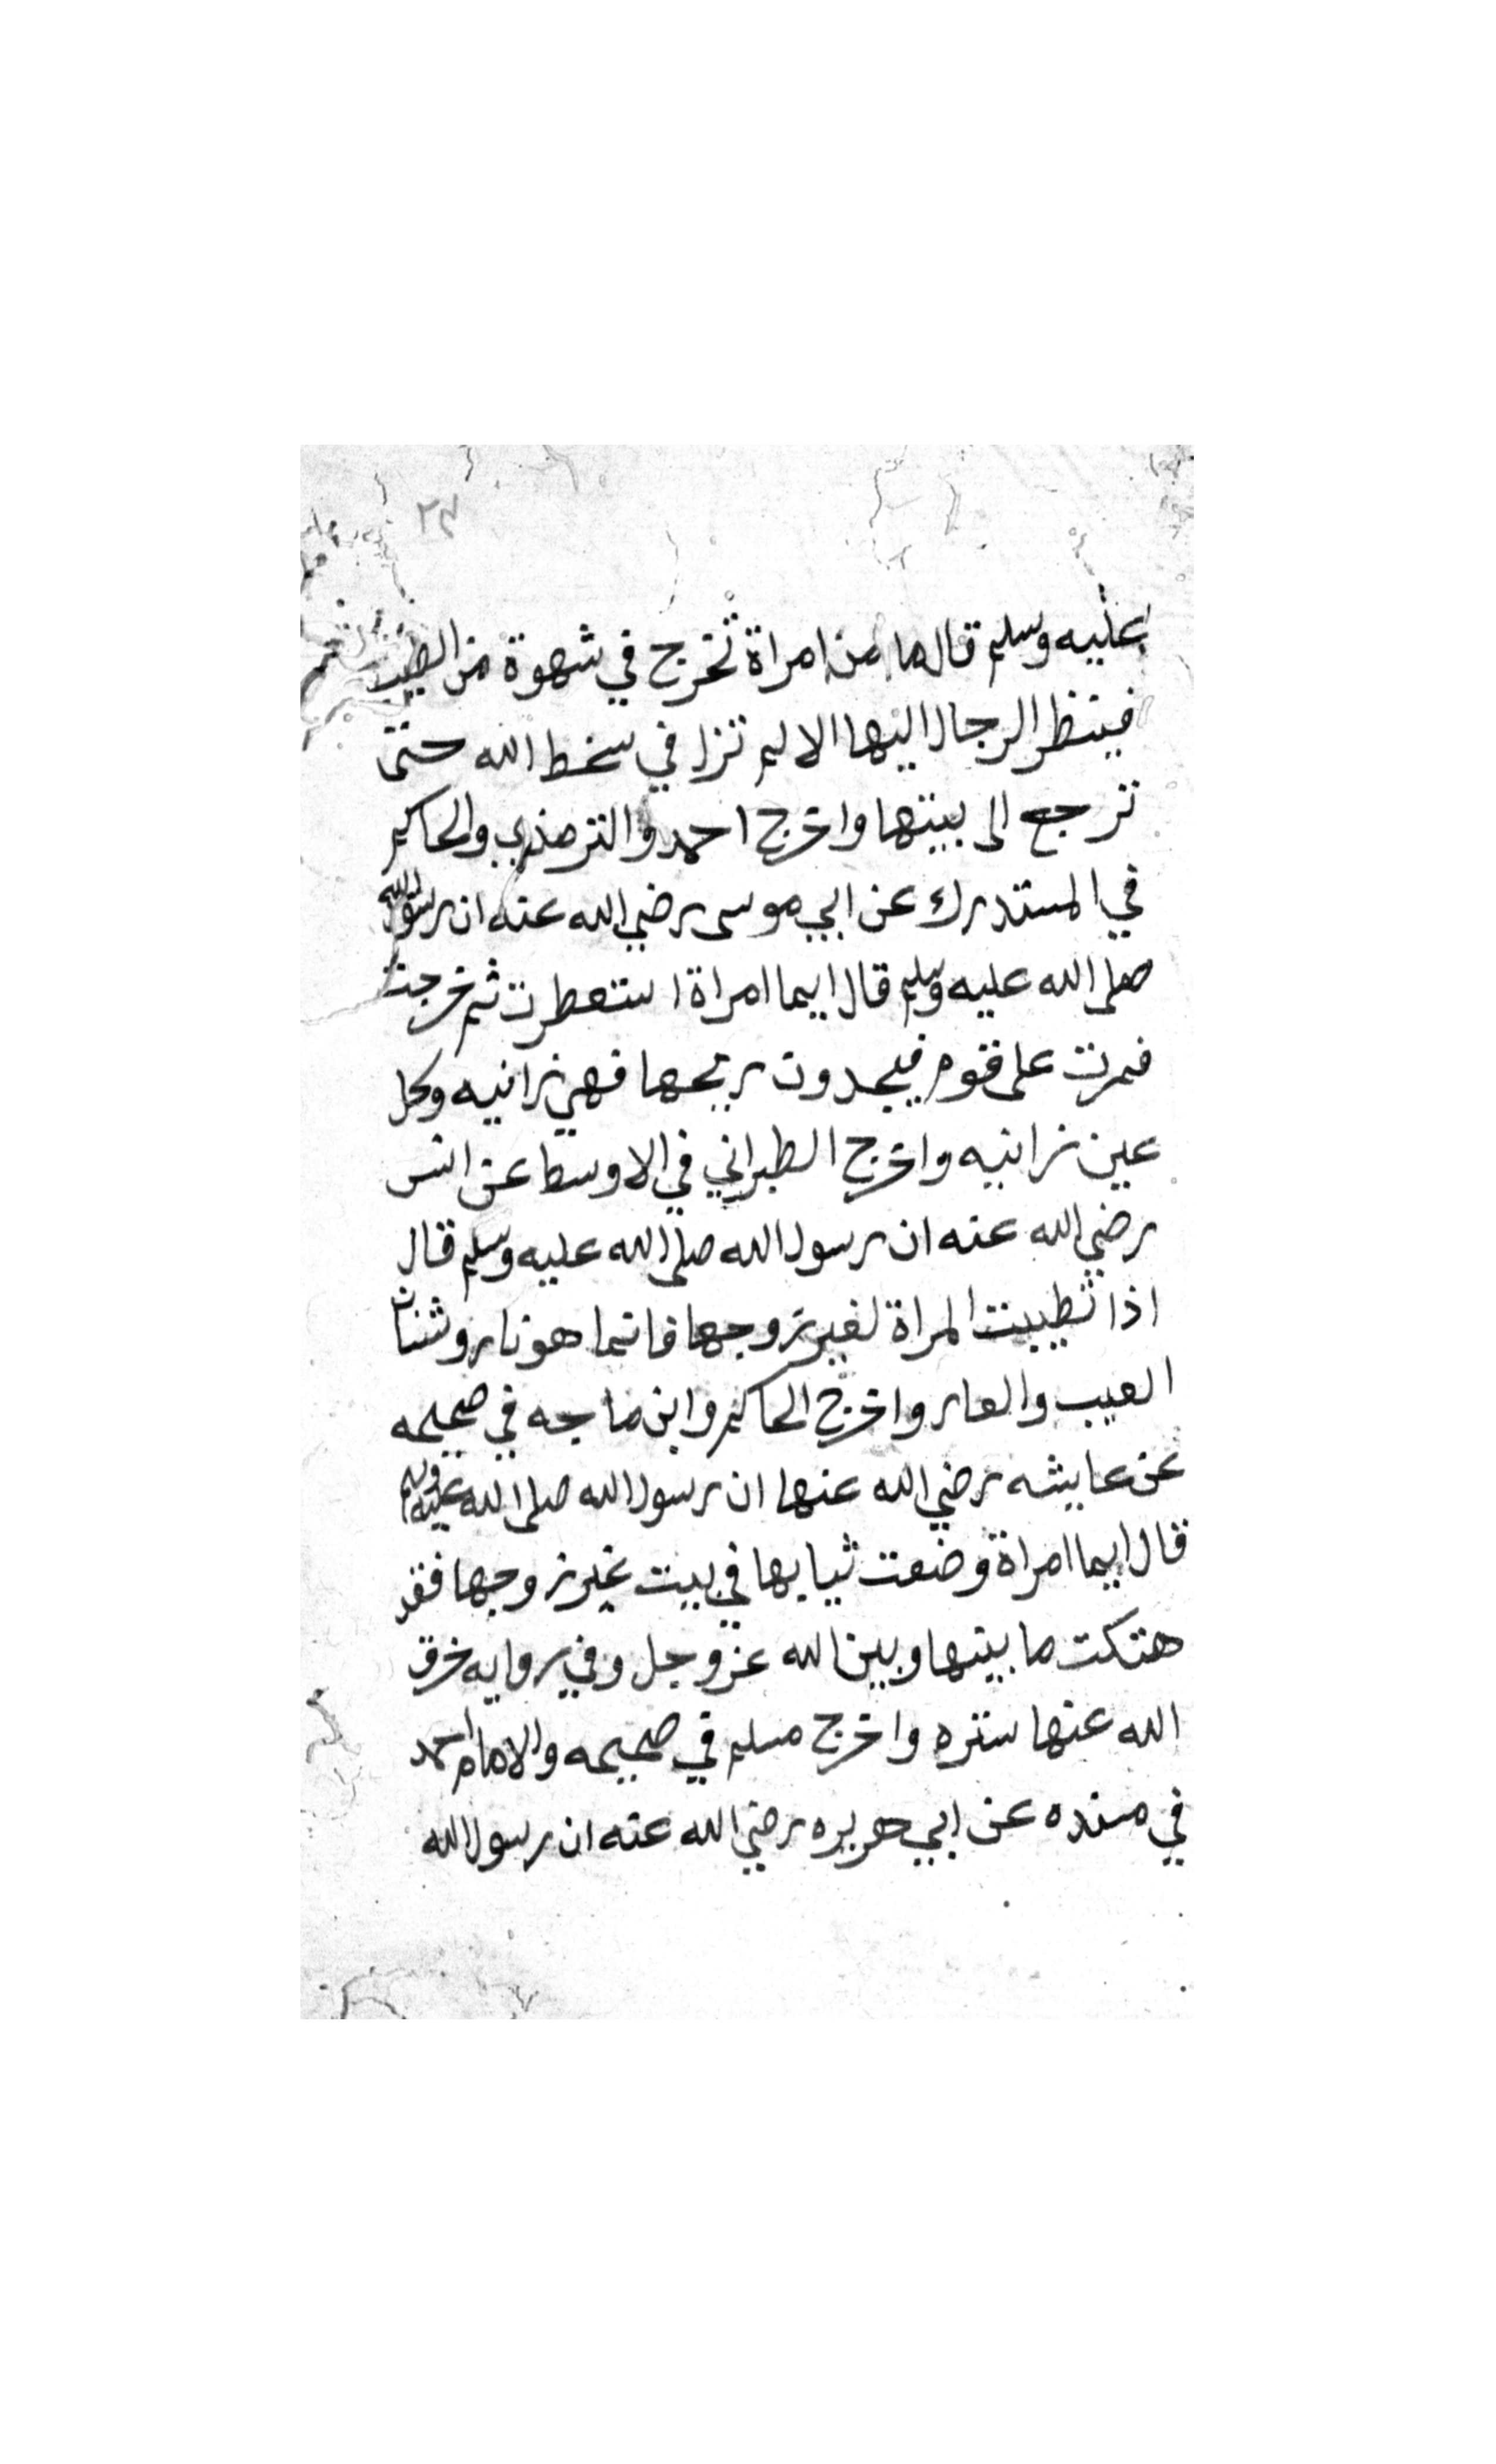 ٢٣
عليه وسلم قال ما من امراة تخرج في شهوة من الطيب
فينظر الرجال اليها الا لم تزل في سخط الله حتى
ترجع الى بيتها واخرج احمد والترمذي والحاكم
في المستدرك عن ابي موسى رضي الله عنه ان رسول الله
صلى الله عليه وسلم قال ايما امراة استعطرت ثم خرجت
فمرت على قوم فيجدون ريحها فهي زانيه وكل
عين زانيه واخرج الطبراني في الاوسط عن انس
رضي الله عنه ان رسول الله صلى الله عليه وسلم قال
اذا تطيبت المراة لغير زوجها فانما هو نار وشنان
العيب والعار واخرج الحاكم وابن ماجه في صحيحه
عن عايشه رضي الله عنها ان رسول الله صلى الله عليه وسلم
قال ايما امراة وضعت ثيابها في بيت غير زوجها فقد
هتكت ما بينها وبين الله عز وجل وفي روايه خرق
الله عنها ستره واخرج مسلم في صحيحه والامام احمد
في مسنده عن ابي هريره رضي الله عنه ان رسول الله